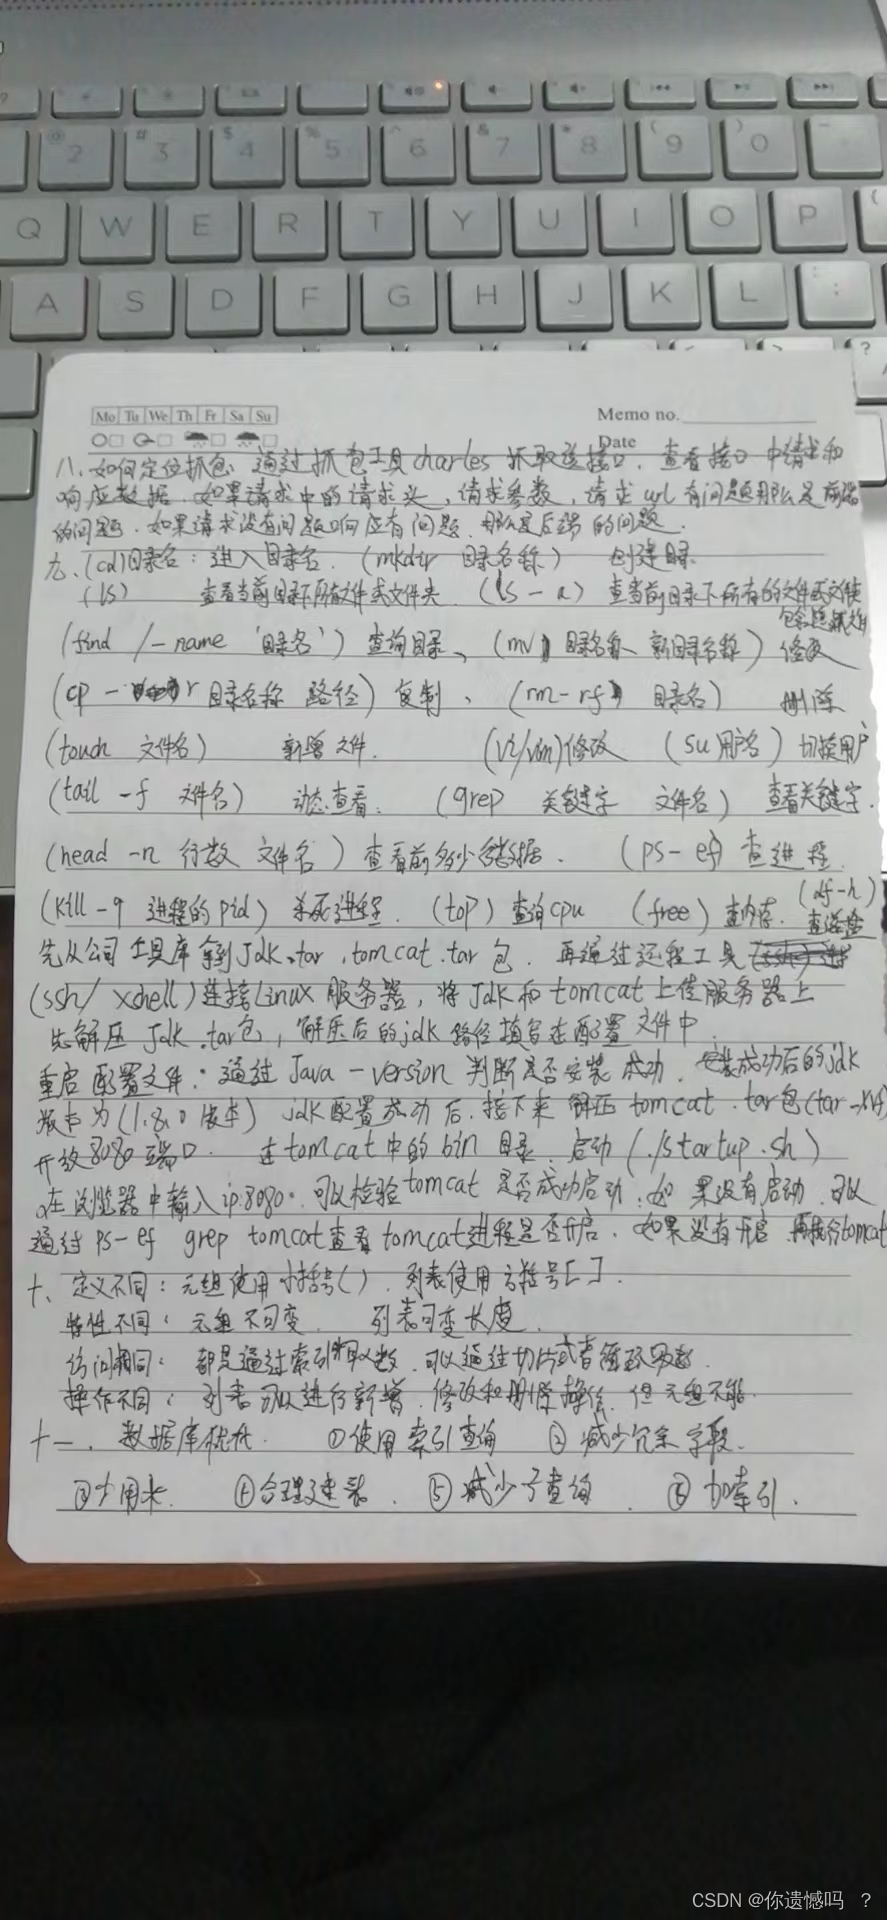 @ 2 # 3 $ 4 % 5 ^ 6 & 7 * 8 ( 9 ) 0
Q W E R T Y U I O P
A S D F G H J K L
Mo Tu We Th Fr Sa Su
Memo no.
Date
八、如何定位抓包、通过抓包工具charles 抓取送接口、查看接口中请求和
响应数据、如果请求中的请求头,请求参数,请求url有问题那么是前端
的问题、如果请求没有问题响应有问题、那么是后端的问题、
九、(cd)目录名:进入目录名、(mkdir 目录名称) 创建目录
(ls) 查看当前目录下所有文件或文件夹、(ls-a) 查当前目录下所有的文件或文件夹
包含隐藏文件
(find /-name '目录名') 查询目录、(mv 目录名称、新目录名称) 修改
(cp - r 目录名称 路径) 复制、(rm-rf 目录名) 删除
(touch 文件名) 新增文件. (vi/vim)修改 (su用户名) 切换用户
(tail -f 文件名) 动态查看. (grep 关键字 文件名) 查看关键字.
(head -n 行数 文件名) 查看前多少条数据. (ps-ef) 查进程.
(kill -9 进程的pid) 杀死进程. (top) 查询cpu (free) 查内存. (df-h)
先从公司工具库拿到Jdk.tar,tomcat.tar包. 再通过远程工具
(ssh/xshell)连接Linux服务器,将Jdk和tomcat上传服务器上
先解压Jdk.tar包,解压后的jdk路径填写在配置文件中.
重启配置文件.通过Java-version判断是否安装成功.安装成功后的jdk
版本为(1.8.0版本) jdk配置成功后.接下来解压tomcat.tar包(tar-xvf)
开放8080端口. 在tomcat中的bin目录.启动(./startup.sh)
在浏览器中输入ip:8080.可以检验tomcat是否成功启动.如果没有启动.可以
通过ps-ef grep tomcat查看tomcat进程是否开启.如果没有开启.再执行tomcat
十、定义不同:元组使用小括号().列表使用方括号[].
特性不同:元组不可变. 列表可变长度.
访问相同:都是通过索引取数.可以通过切片或者
操作不同:列表可以进行新增.修改和删除操作.但元组不能.
十一、数据库优化. ①使用索引查询 ②减少冗余字段.
③少用 ④合理建表. ⑤减少子查询. ⑥加索引.
CSDN @你遗憾吗 ?